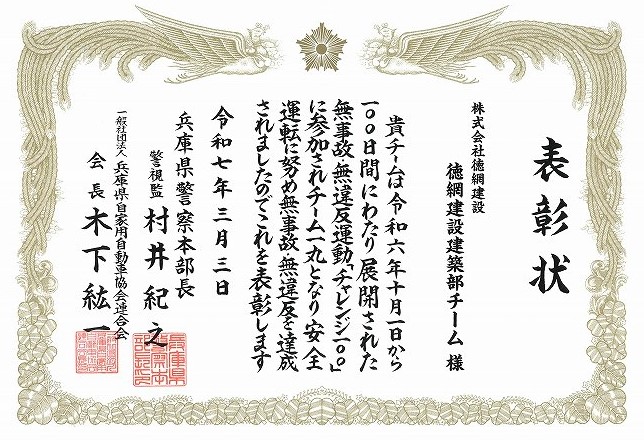 表彰状
株式会社徳網建設
徳網建設建築部チーム 様
貴チームは令和六年十月一日から
一〇〇日間にわたり展開された
無事故・無違反運動「チャレンジ一〇〇」
に参加されチーム一丸となり安全
運転に努め無事故・無違反を達成
されましたのでこれを表彰します
令和七年三月三日
兵庫県警察本部長
警視監 村井紀之
一般社団法人 兵庫県自家用自動車協会連合会
会長 木下紘一
兵庫県
警察本
部長印